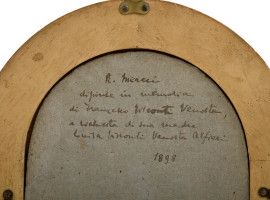 R. Mercei
dipinse in memoria
di Francesco Visconti Venosta,
a richiesta di sua madre
Luisa Visconti Venosta Alfieri
1898